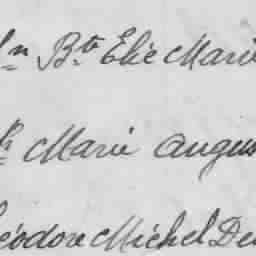 Jn Bte Elie Marie
Marie Augus
éodore Michel De